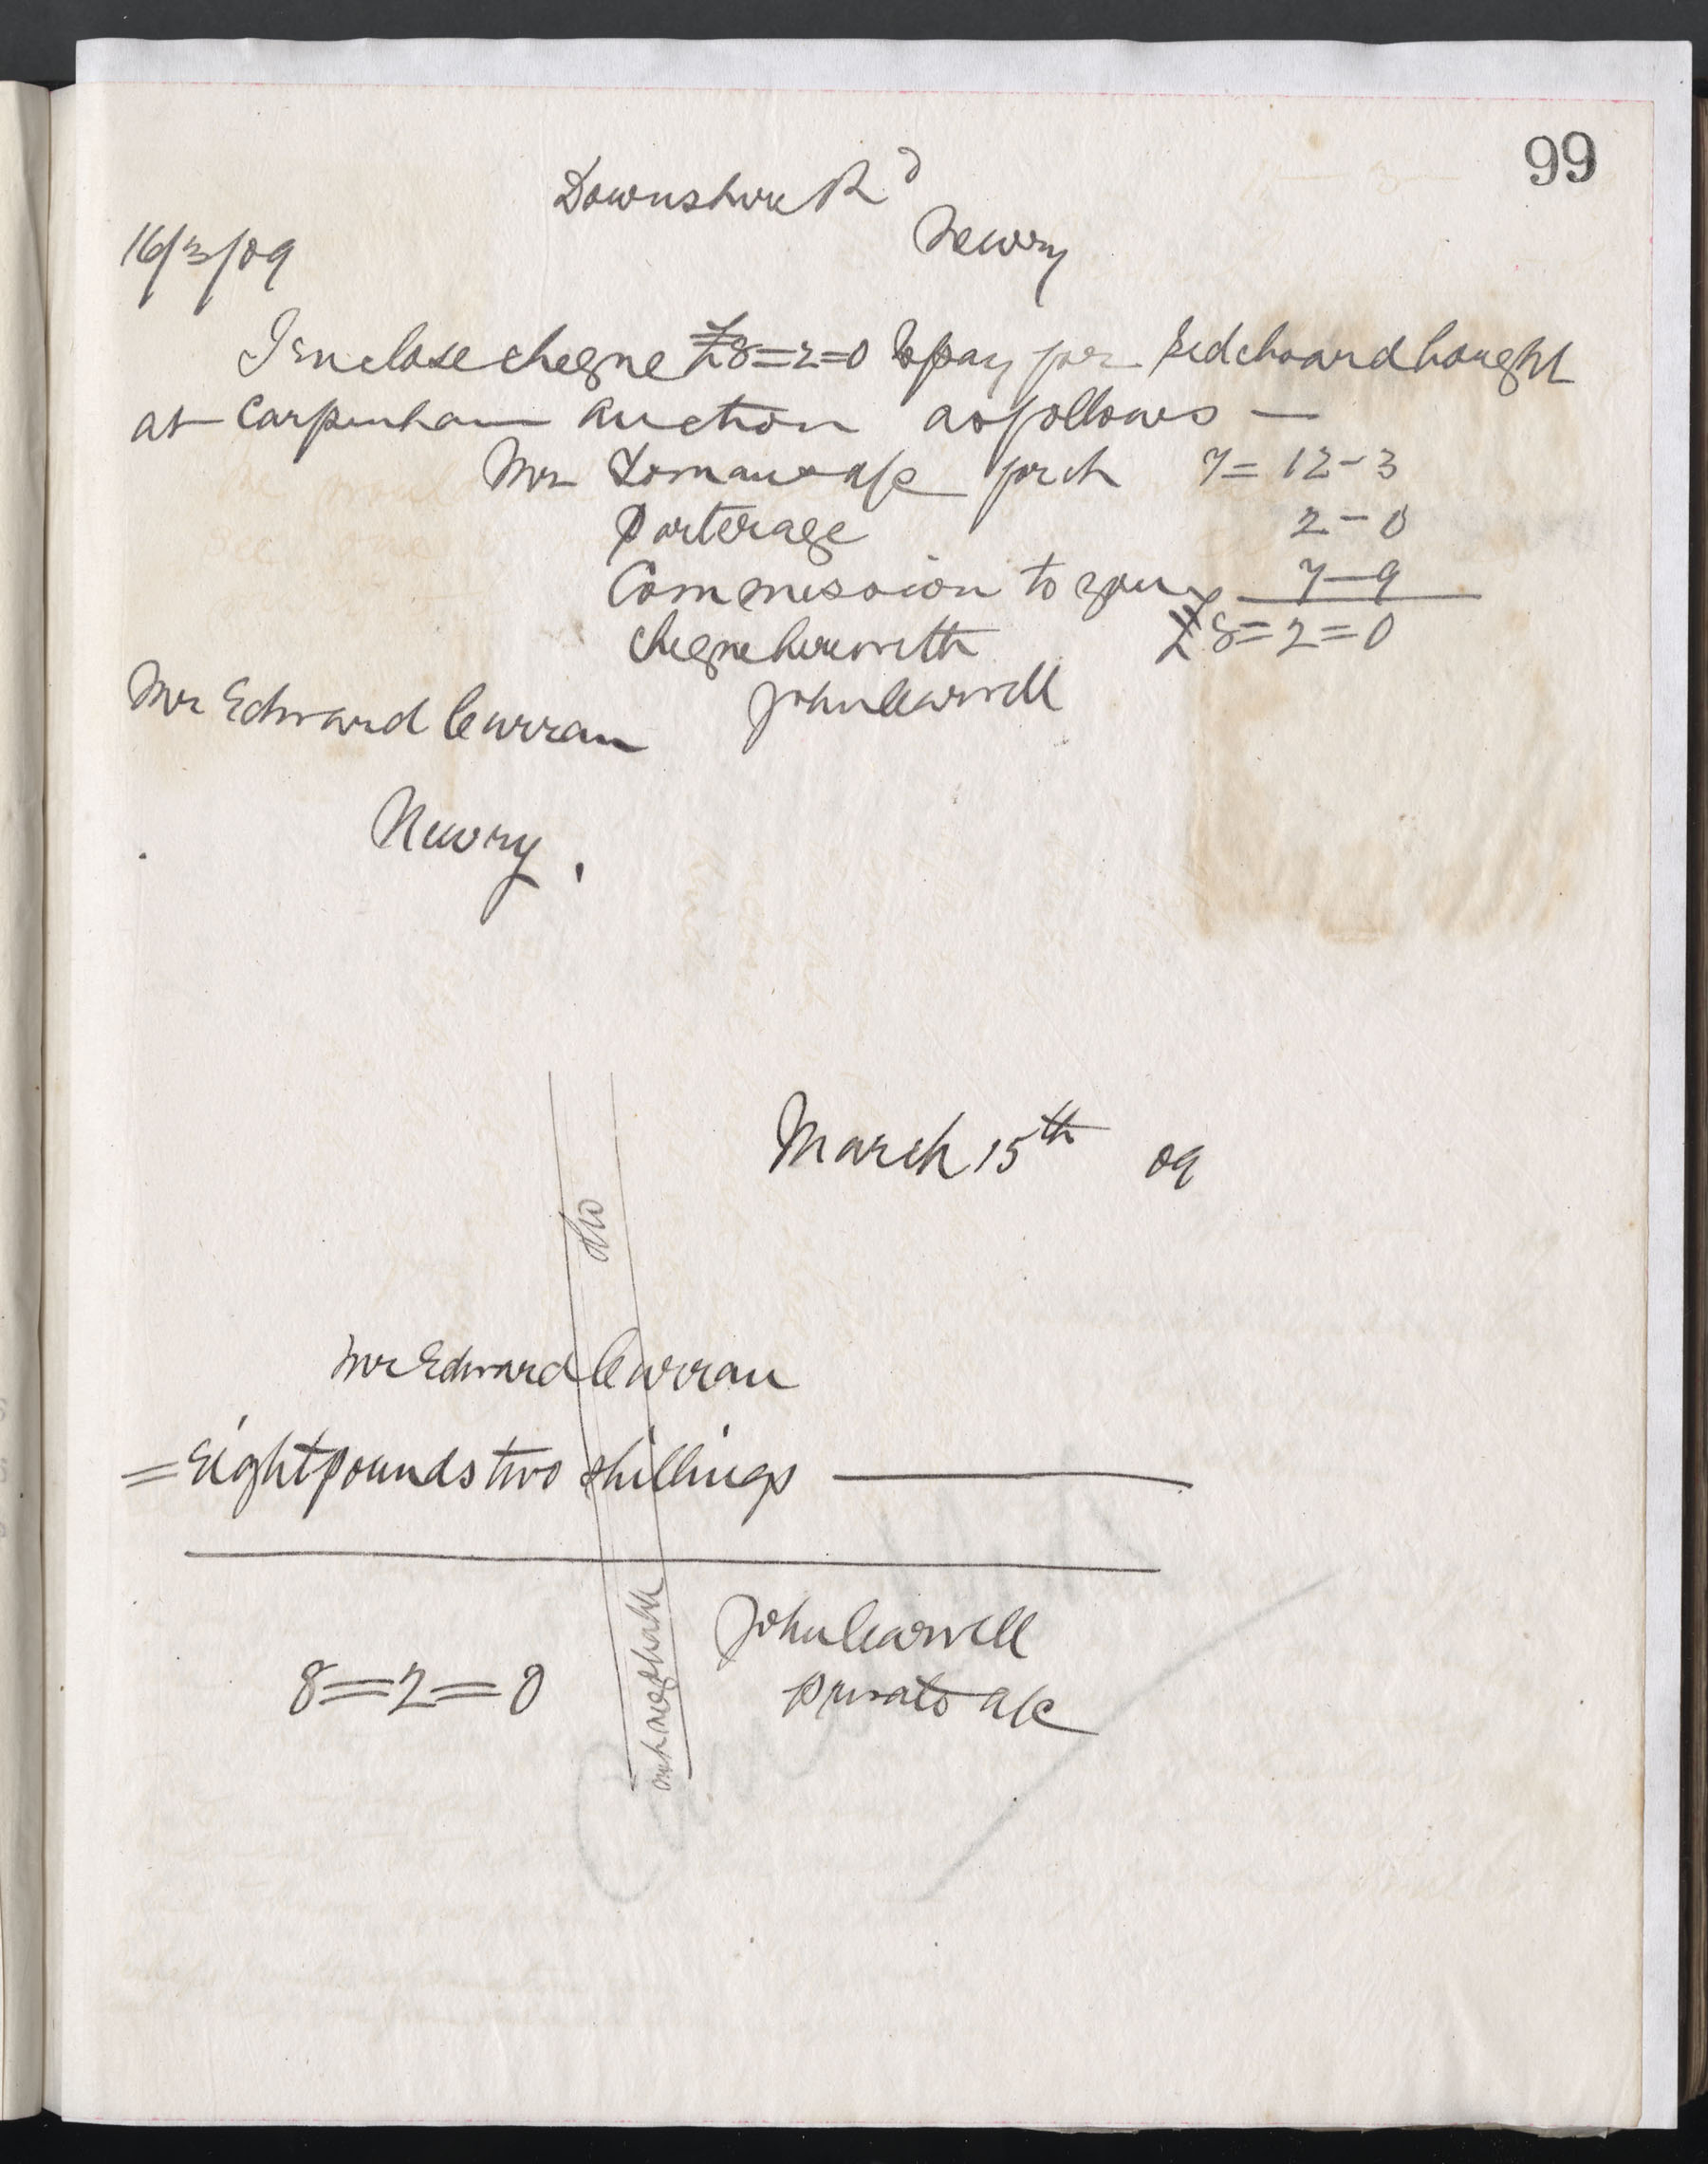 99
Downshire Rd
Newry
16/3/09
I enclose cheque £8=2=0 to pay for Sideboard bought
at Carpenham Auction as follows —
Mr a/c for 7=12-3
Porterage 2-0
Commission to you 7-9
Cheque herewith £8=2=0
John Carvill
Mr Edward Curran
Newry.
March 15th 09
&Co
Mr Edward Curran
= Eight pounds two shillings —
8=2=0
John Carvill
private a/c